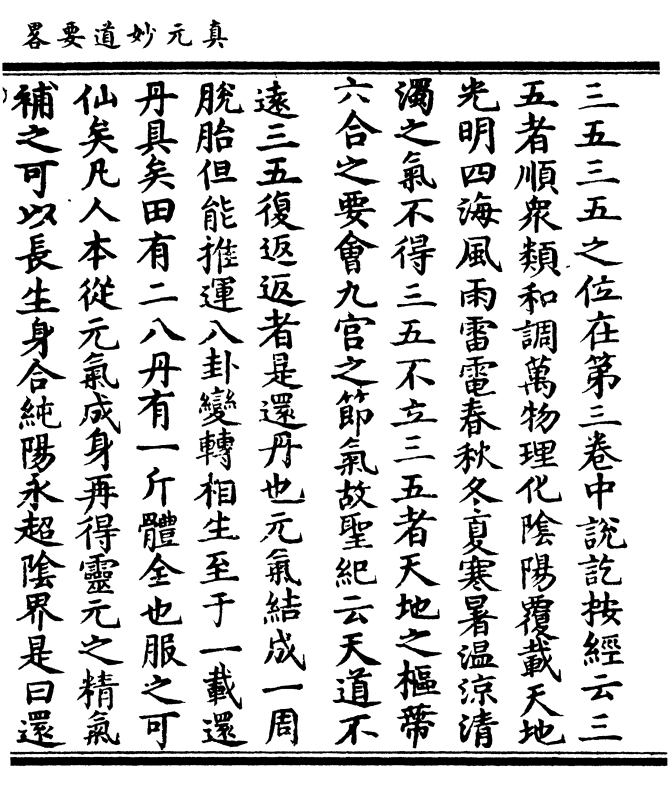 真元妙道要畧
三五三五之位在第三卷中説訖按經云三
五者順衆類和調萬物理化陰陽覆載天地
光明四海風雨雷電春秋冬夏寒暑温涼清
濁之氣不得三五不立三五者天地之樞蔕
六合之要會九宫之節氣故聖紀云天道不
遠三五復返返者是還丹也元氣結成一周
脱胎但能推運八卦變轉相生至于一載還
丹具矣田有二八丹有一斤體全也服之可
仙矣凡人本從元氣成身再得靈元之精氣
補之可以長生身合純陽永超陰界是曰還